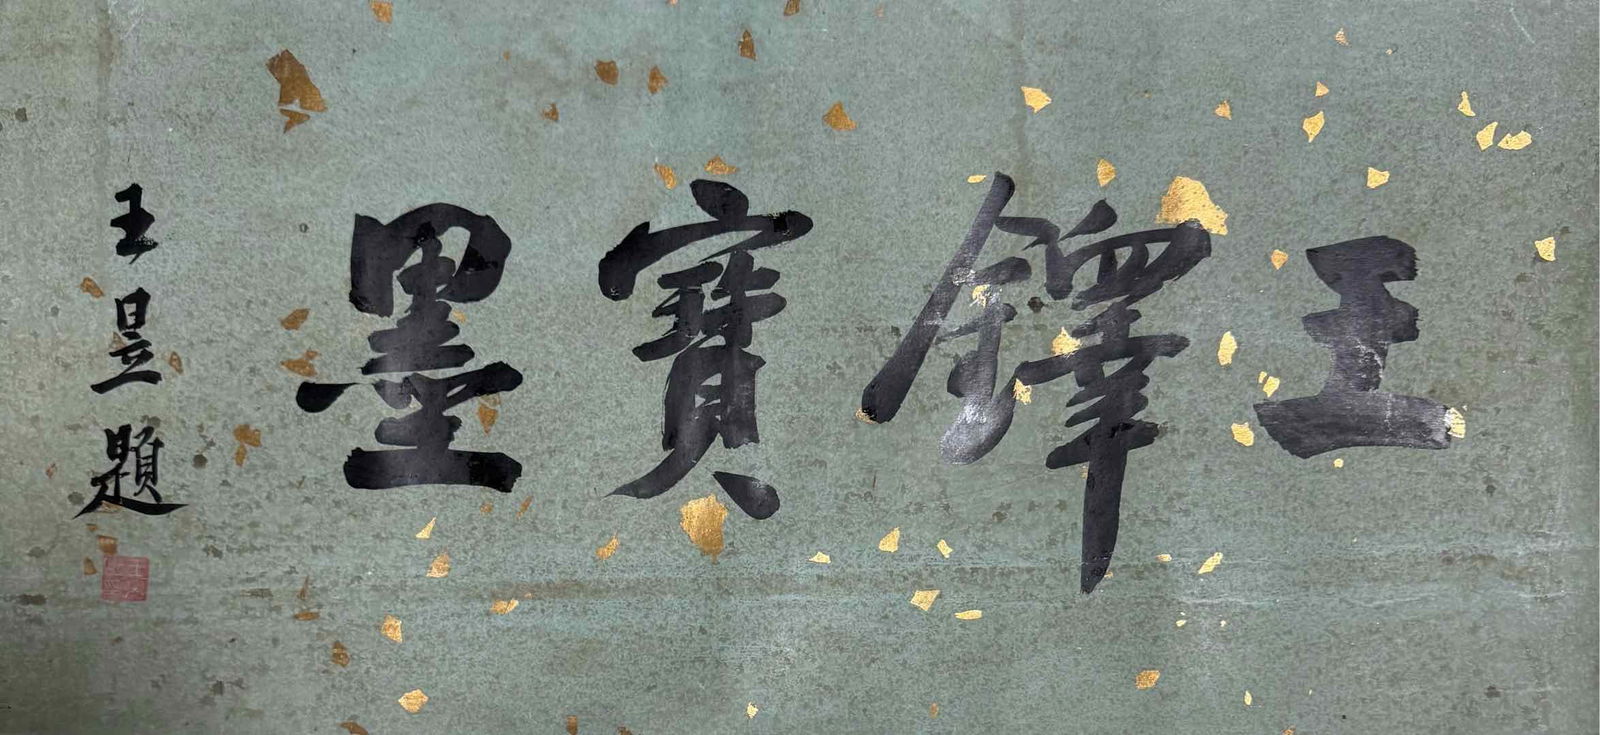 王鐸寶墨
王昱題